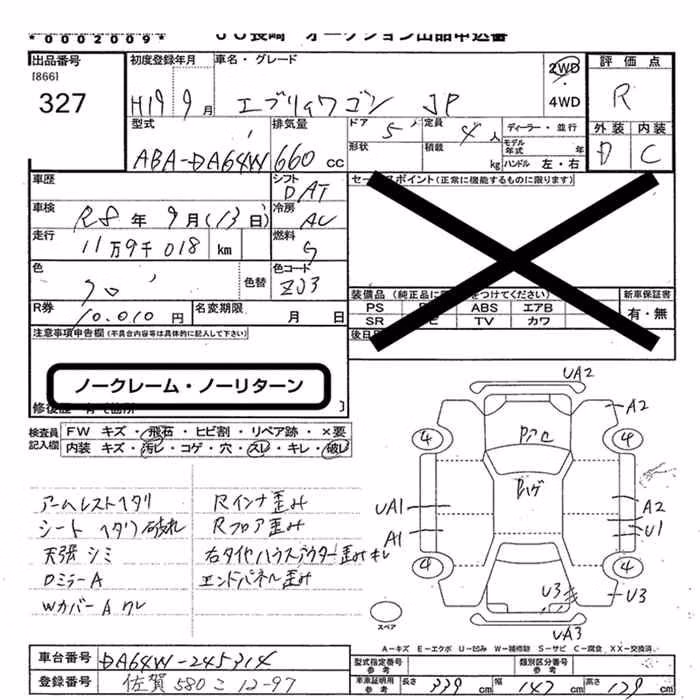 *0002009* JU長崎 オークション出品申込書
出品番号 [866] 327
初度登録年月 H19 9月
車名・グレード エブリィワゴン JP
2WD ・ 4WD
評価点 R
外装 D 内装 C
型式 ABA-DA64W
排気量 660 cc
ドア 5 定員 4人
形状 積載 kg
ディーラー・並行
モデル年式 年
ハンドル 左・右
車歴
シフト DAT
セールスポイント (正常に機能するものに限ります)
車検 R8年 9月(13日)
冷房 AC
走行 11万9千018 km
燃料 G
色 クロ 色替
色コード ZJ3
装備品 (純正品に をつけてください)
新車保証書 有・無
PS ABS エアB
SR TV カワ
R券 10,010円
名変期限 月 日
後日
注意事項申告欄 (不具合内容等は具体的に記入して下さい)
ノークレーム・ノーリターン
修復歴 有 箇所 ]
検査員記入欄
FW キズ・飛石・ヒビ割・リペア跡・×要
内装 キズ・汚レ・コゲ・穴・スレ・キレ・破レ
アームレストヘタリ Rインナ歪み
シート ヘタリ 破れ Rフロア歪み
天張シミ 右タイヤハウスアウター歪みキレ
Dミラー A エンドパネル歪み
WカバーA ワレ
UA2
A2
4 4
UA1 A2
U1
A1
4 4
U3 U3
UA3
スペア
A－キズ E－エクボ U－凹み W－補修跡 S－サビ C－腐食 XX－交換済
車台番号 DA64W-245314
登録番号 佐賀 580 こ 12-97
型式指定番号 参考
類別区分番号 参考
車庫証明用 参考 長さ 339 cm 幅 147 cm 高さ cm